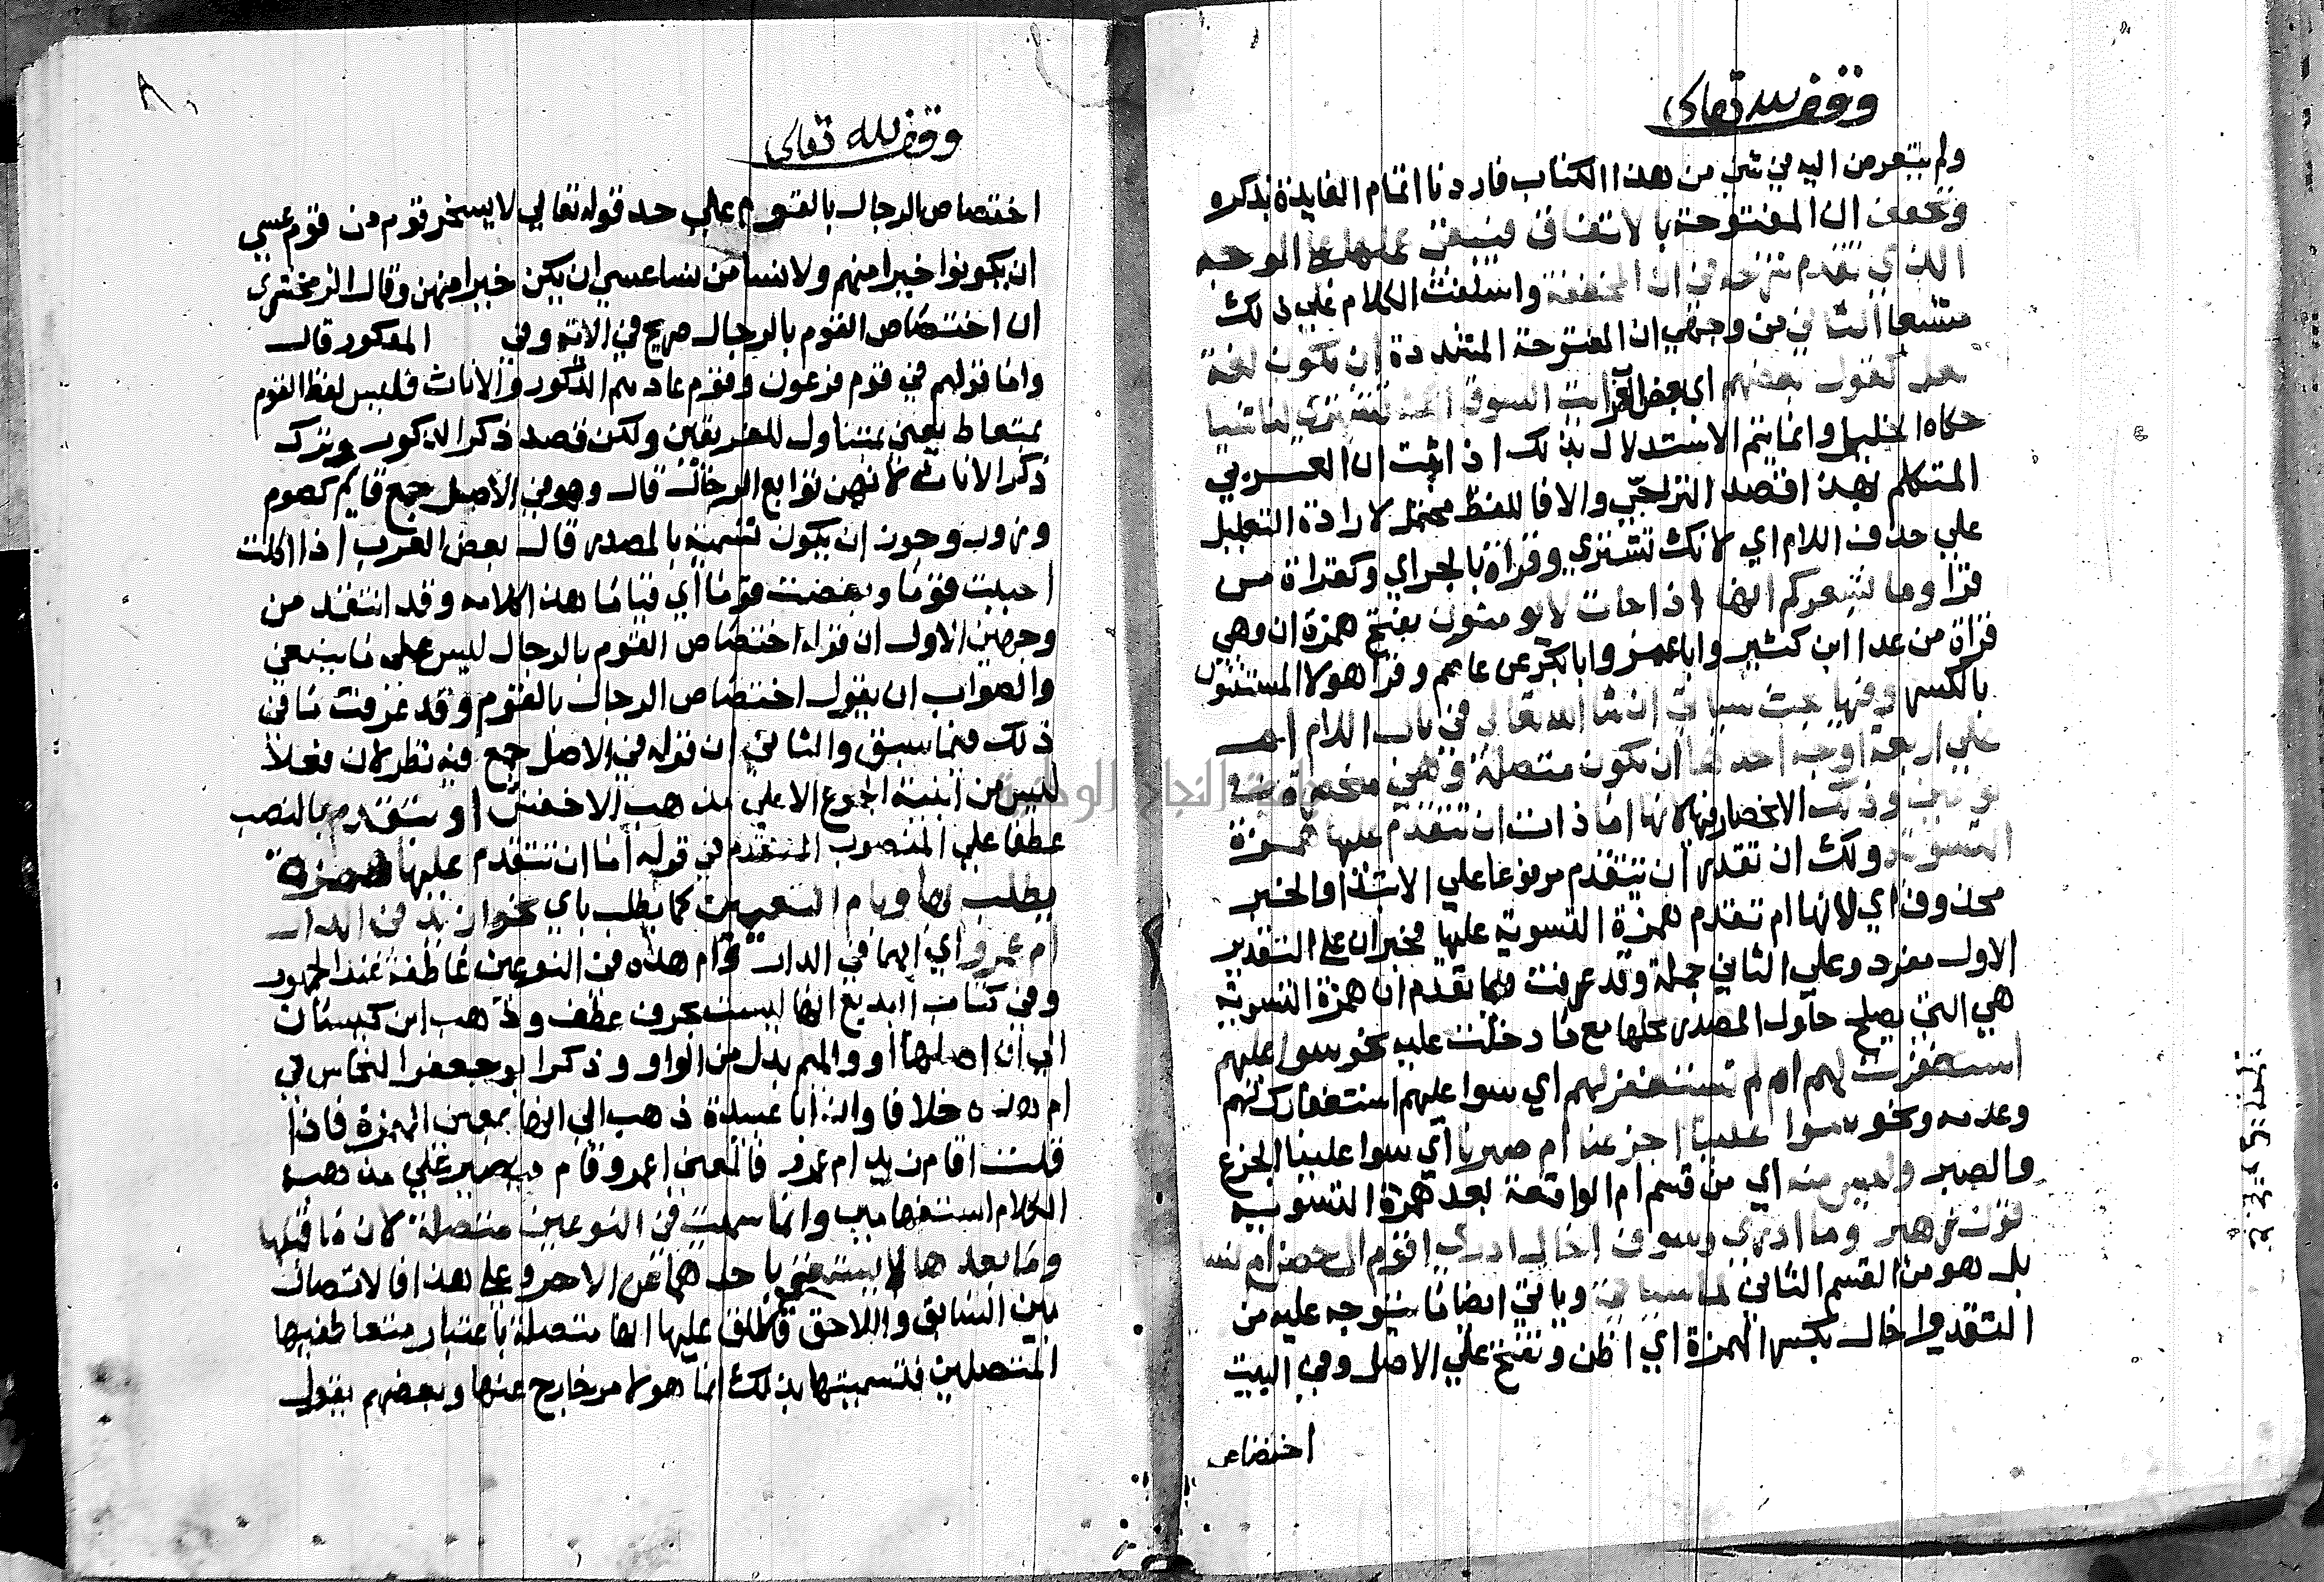 وقف لله تعالى
ولم يتعرض اليه في شئ من هذا الكتاب فاردنا اتمام الفايدة بذكره
وتخفف ان المفتوحة بالاتفاق فيبقى عملها على الوجه
الذي تقدم شرحه في ان المخففة واسلفت الكلام على ذلك
مشبعا الثاني من وجهي ان المفتوحة المشددة ان تكون لغة
لعل كقول بعضهم اي بعض العرب ايت السوق انك تشتري لنا شيا
حكاه الخليل وانما يتم الاستدلال بذلك اذا ثبت ان العربي
المتكلم بهذا قصد الترجي والا فاللفظ محتمل لارادة التعليل
على حذف اللام اي لانك تشتري وقراة بالجراي وكقراة من
قرا وما يشعركم انها اذا جات لا يومنون بفتح همزة ان وهي
قراة من عدا ابن كثير وابا عمرو وابا بكر عن عاصم وقرا هولا المستثنون
بالكسر وفيها بحث سياتي ان شا الله تعالى في باب اللام ام
على اربعة اوجه احدها ان تكون متصلة وهي منحصرة في
نوعين وذلك الانحصار فيها لانها اما ذات ان تتقدم عليها همزة
التسوية ولك ان تقدر ان تتقدم مرفوعا على الابتدا والخبر
محذوف اي لانها ام تقدم همزة التسوية عليها فخبر ان على التقدير
الاول مفرد وعلى الثاني جملة وقد عرفت فيما تقدم ان همزة التسوية
هي التي يصلح حلول المصدر محلها مع ما دخلت عليه نحو سوا عليهم
استغفرت لهم ام لم تستغفر لهم اي سوا عليهم استغفارك لهم
وعدمه ونحو سوا علينا اجزعنا ام صبرنا اي سوا علينا الجزع
والصبر وليس منه اي من قسم ام الواقعة بعد همزة التسوية
قول زهير وما ادري وسوف اخال ادري اقوم ال حصن ام نسا
بل هو من القسم الثاني لما سياتي وياتي ايضا ما يتوجه عليه من
النقد واخال بكسر الهمزة اي اظن وتفتح على الاصل وفي البيت
اختصاص
وقف لله تعالى
اختصاص الرجال بالقوم على حد قوله تعالى لا يسخر قوم من قوم عسى
ان يكونوا خيرا منهم ولا نسا من نسا عسى ان يكن خيرا منهن وقال الزمخشري
ان اختصاص القوم بالرجال صريح في الاية وفي المذكور قال
واما قولهم في قوم فرعون وقوم عاد هم الذكور والاناث فليس لفظ القوم
بمتعاط يعني بمتناول للفريقين ولكن قصد ذكر الذكور وترك
ذكر الاناث لانهن توابع الرجال قال وهو في الاصل جمع قايم كصوم
وزور وجوز ان يكون تسمية بالمصدر قال بعض العرب اذا اكلت
احببت قوما وبغضت قوما اي قياما هذا كلامه وقد انتقد من
وجهين الاول ان قوله اختصاص القوم بالرجال ليس على ما ينبغي
والصواب ان يقول اختصاص الرجال بالقوم وقد عرفت ما في
ذلك فيما سبق والثاني ان قوله في الاصل جمع فيه نظر لان فعلا
ليس من ابنية الجموع الا على مذهب الاخفش او تتقدم بالنصب
عطفا على المنصوب المتقدم في قوله اما ان تتقدم عليها همزة
يطلب بها وبام التعيين كما يطلب باي نحو ازيد في الدار
ام عمرو اي ايهما في الدار وام هذه في النوعين عاطفة عند الجمهور
وفي كتاب البديع انها ليست بحرف عطف وذهب ابن كيسان
الى ان اصلها او والميم بدل من الواو وذكر ابو جعفر النحاس في
ام هذه خلافا وان ابا عبيدة ذهب الى انها بمعنى الهمزة فاذا
قلت اقام زيد ام عمرو فالمعنى اعمرو قام فيصير على مذهبه
الكلام استفهامين وانما سميت في النوعين متصلة لان ما قبلها
وما بعدها لا يستغنى باحدهما عن الاخر وعلى هذا فالاتصال
بين السابق واللاحق فاطلق عليها انها متصلة باعتبار متعاطفيها
المتصلين فتسميتها بذلك انما هو لامر خارج عنها وبعضهم يقول